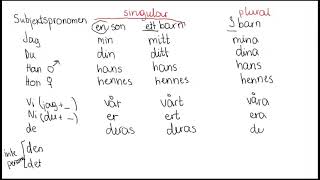 singular plural
Subjektspronomen en son ett barn 3 barn
Jag min mitt mina
Du din ditt dina
Han ♂ hans hans hans
Hon ♀ hennes hennes hennes
Vi (jag+_) vår vårt våra
Ni (du+_) er ert era
de deras deras de
inte person [den
[det